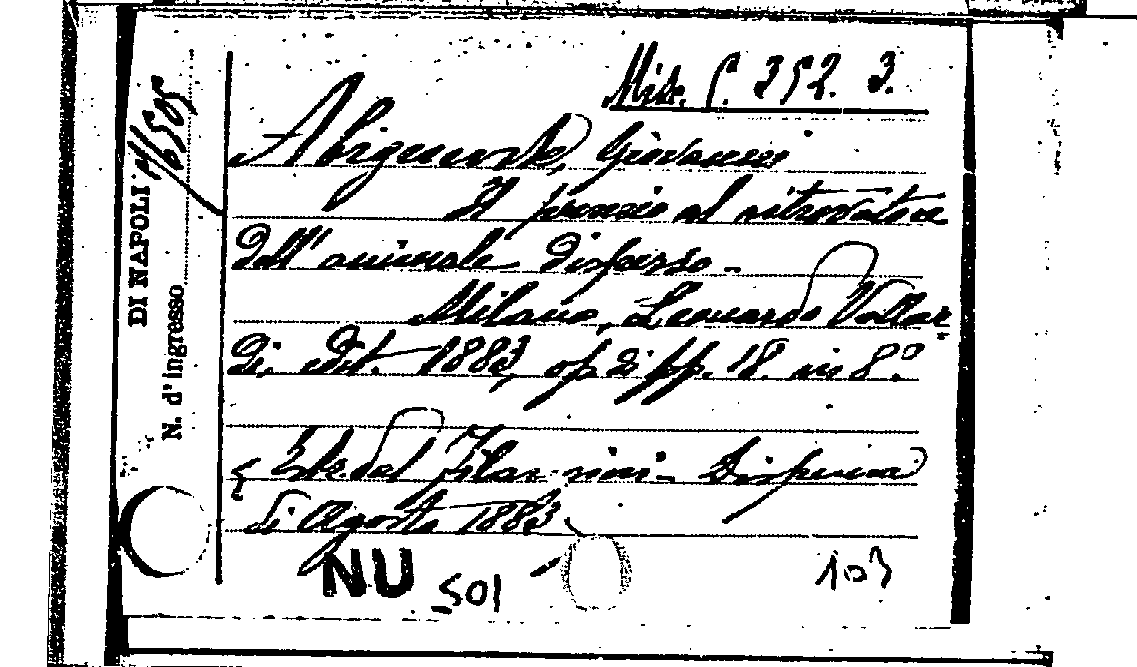 Misc. C. 352. 3.
Abignente, Giovanni
Il premio al ritrovatore
dell' animale disperso -
Milano, Leonardo Vallar
di, edit. 1883, op. di pp. 18. in 8.º
Estr. dal Filangieri - Dispensa
di Agosto 1883
NU 501
103
DI NAPOLI
N. d'ingresso